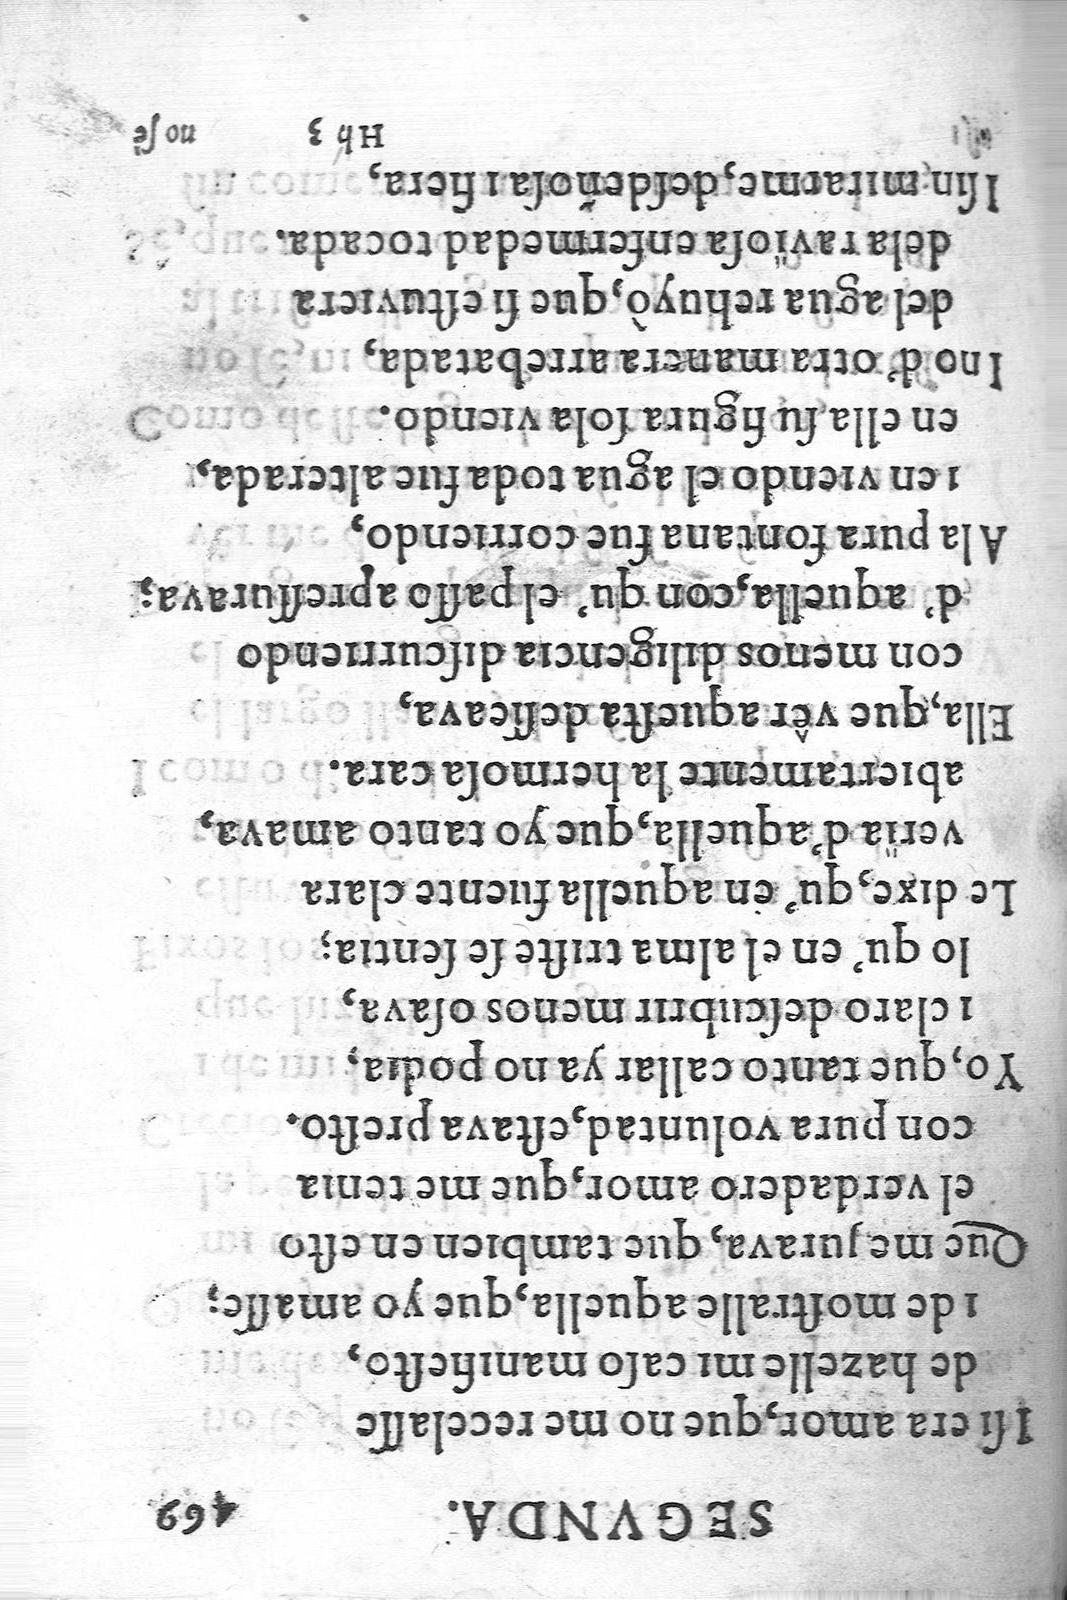 SEGVNDA. 469
I ſi era amor, que no me recelaſſe
de hazelle mi caſo manifieſto,
i de moſtralle aquella, que yo amaſſe;
Que me jurava, que tambien en eſto
el verdadero amor, que me tenia
con pura voluntad, eſtava preſto.
Yo, que tanto callar ya no podia,
i claro deſcubrir menos oſava,
lo qu' en el alma triſte ſe ſentia;
Le dixe, qu' en aquella fuente clara
verïa d'aquella, que yo tanto amava,
abiertamente la hermoſa cara.
Ella, que vêr aqueſta deſſeava,
con menos diligencia diſcurriendo
d' aquella, con qu' el paſſo apreſſurava;
A la pura fontana fue corriendo,
i en viendo el agua toda fue alterada,
en ella ſu figura ſola viendo.
I no d' otra manera arrebatada,
del agua rehuyò, que ſi eſtuviera
de la ravïoſa enfermedad tocada.
I ſin mirarme, deſdeñoſa i fiera,
Hh 3 no ſè